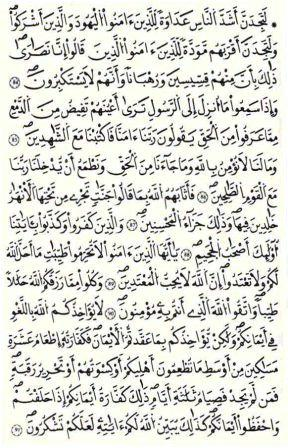 لَتَجِدَنَّ أَشَدَّ ٱلنَّاسِ عَدَٰوَةً لِّلَّذِينَ ءَامَنُوا۟ ٱلْيَهُودَ وَٱلَّذِينَ أَشْرَكُوا۟
وَلَتَجِدَنَّ أَقْرَبَهُم مَّوَدَّةً لِّلَّذِينَ ءَامَنُوا۟ ٱلَّذِينَ قَالُوٓا۟ إِنَّا نَصَٰرَىٰ
ذَٰلِكَ بِأَنَّ مِنْهُمْ قِسِّيسِينَ وَرُهْبَانًا وَأَنَّهُمْ لَا يَسْتَكْبِرُونَ
وَإِذَا سَمِعُوا۟ مَآ أُنزِلَ إِلَى ٱلرَّسُولِ تَرَىٰٓ أَعْيُنَهُمْ تَفِيضُ مِنَ ٱلدَّمْعِ
مِمَّا عَرَفُوا۟ مِنَ ٱلْحَقِّ يَقُولُونَ رَبَّنَآ ءَامَنَّا فَٱكْتُبْنَا مَعَ ٱلشَّٰهِدِينَ
وَمَا لَنَا لَا نُؤْمِنُ بِٱللَّهِ وَمَا جَآءَنَا مِنَ ٱلْحَقِّ وَنَطْمَعُ أَن يُدْخِلَنَا رَبُّنَا
مَعَ ٱلْقَوْمِ ٱلصَّٰلِحِينَ فَأَثَٰبَهُمُ ٱللَّهُ بِمَا قَالُوا۟ جَنَّٰتٍ تَجْرِى مِن تَحْتِهَا ٱلْأَنْهَٰرُ
خَٰلِدِينَ فِيهَا وَذَٰلِكَ جَزَآءُ ٱلْمُحْسِنِينَ وَٱلَّذِينَ كَفَرُوا۟ وَكَذَّبُوا۟ بِـَٔايَٰتِنَآ
أُو۟لَٰٓئِكَ أَصْحَٰبُ ٱلْجَحِيمِ يَٰٓأَيُّهَا ٱلَّذِينَ ءَامَنُوا۟ لَا تُحَرِّمُوا۟ طَيِّبَٰتِ مَآ أَحَلَّ ٱللَّهُ
لَكُمْ وَلَا تَعْتَدُوٓا۟ إِنَّ ٱللَّهَ لَا يُحِبُّ ٱلْمُعْتَدِينَ وَكُلُوا۟ مِمَّا رَزَقَكُمُ ٱللَّهُ حَلَٰلًا
طَيِّبًا وَٱتَّقُوا۟ ٱللَّهَ ٱلَّذِىٓ أَنتُم بِهِۦ مُؤْمِنُونَ لَا يُؤَاخِذُكُمُ ٱللَّهُ بِٱللَّغْوِ
فِىٓ أَيْمَٰنِكُمْ وَلَٰكِن يُؤَاخِذُكُم بِمَا عَقَّدتُّمُ ٱلْأَيْمَٰنَ فَكَفَّٰرَتُهُۥٓ إِطْعَامُ عَشَرَةِ
مَسَٰكِينَ مِنْ أَوْسَطِ مَا تُطْعِمُونَ أَهْلِيكُمْ أَوْ كِسْوَتُهُمْ أَوْ تَحْرِيرُ رَقَبَةٍ
فَمَن لَّمْ يَجِدْ فَصِيَامُ ثَلَٰثَةِ أَيَّامٍ ذَٰلِكَ كَفَّٰرَةُ أَيْمَٰنِكُمْ إِذَا حَلَفْتُمْ
وَٱحْفَظُوٓا۟ أَيْمَٰنَكُمْ كَذَٰلِكَ يُبَيِّنُ ٱللَّهُ لَكُمْ ءَايَٰتِهِۦ لَعَلَّكُمْ تَشْكُرُونَ